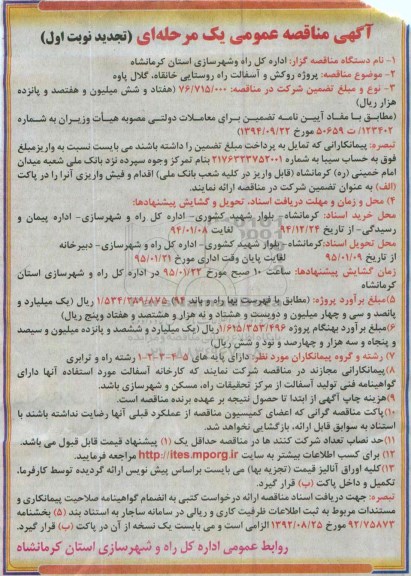 آگهی مناقصه عمومی یک مرحله‌ای (تجدید نوبت اول)
۱- نام دستگاه مناقصه گزار: اداره کل راه وشهرسازی استان کرمانشاه
۲- موضوع مناقصه: پروژه روکش و آسفالت راه روستایی خانقاه، گلال پاوه
۳- نوع و مبلغ تضمین شرکت در مناقصه: ۷۶/۷۱۵/۰۰۰ (هفتاد و شش میلیون و هفتصد و پانزده
هزار ریال)
(مطابق با مفاد آیین نامه تضمین برای معاملات دولتی مصوبه هیأت وزیران به شماره
۱۲۳۴۰۲/ ت ۵۰۶۵۹ مورخ ۱۳۹۴/۰۹/۲۲)
تبصره: پیمانکارانی که تمایل به پرداخت مبلغ تضمین را داشته باشند می بایست نسبت به واریزمبلغ
فوق به حساب سیبا به شماره ۲۱۷۶۳۲۲۷۵۲۰۰۱ بنام تمرکز وجوه سپرده نزد بانک ملی شعبه میدان
امام خمینی (ره) کرمانشاه (قابل واریز در کلیه شعب بانک ملی) اقدام و فیش واریزی آنرا را در پاکت
(الف) به عنوان تضمین شرکت در مناقصه ارائه نمایند.
۴) محل و زمان و مهلت دریافت اسناد، تحویل و گشایش پیشنهادها:
محل خرید اسناد: کرمانشاه- بلوار شهید کشوری- اداره کل راه و شهرسازی- اداره پیمان و
رسیدگی- از تاریخ ۹۴/۱۲/۲۴ لغایت ۹۴/۰۱/۰۸
محل تحویل اسناد:کرمانشاه- بلوار شهید کشوری- اداره کل راه و شهرسازی- دبیرخانه
از تاریخ ۹۵/۰۱/۰۹ لغایت پایان وقت اداری مورخ ۹۵/۰۱/۲۱
زمان گشایش پیشنهادها: ساعت ۱۰ صبح مورخ ۹۵/۰۱/۲۲ در اداره کل راه و شهرسازی استان
کرمانشاه
۵)مبلغ برآورد پروژه: (مطابق با فهرست بها راه و باند ۹۴) ۱/۵۳۴/۲۸۹/۸۷۵ ریال (یک میلیارد و
پانصد و سی و چهار میلیون و دویست و هشتاد و نه هزار و هشتصد و هفتاد وپنج ریال)
۶)مبلغ برآورد بهنگام پروژه ۱/۶۱۵/۳۵۳/۴۹۶ریال (یک میلیارد و ششصد و پانزده میلیون و سیصد
و پنجاه و سه هزار و چهارصد و نود و شش ریال)
۷) رشته و گروه پیمانکاران مورد نظر: دارای پایه های ۵-۴-۳-۲-۱ رشته راه و ترابری
۸)پیمانکارانی مجازند در مناقصه شرکت نمایند که کارخانه آسفالت مورد استفاده آنها دارای
گواهینامه فنی تولید آسفالت از مرکز تحقیقات راه، مسکن و شهرسازی باشد.
۹)هزینه چاپ آگهی از ابتدا تا حصول نتیجه بر عهده برنده مناقصه است.
۱۰)پاکت مناقصه گرانی که اعضای کمیسیون مناقصه از عملکرد قبلی آنها رضایت نداشته باشند با
استناد به سوابق قابل ارائه، بازگشایی نخواهد شد.
۱۱)حد نصاب تعداد شرکت کنند ها در مناقصه حداقل یک (۱) پیشنهاد قیمت قابل قبول می باشد.
۱۲) برای کسب اطلاعات بیشتر به سایت http://ites.mporg.ir مراجعه فرمایید.
۱۳)کلیه اوراق آنالیز قیمت (تجزیه بها) می بایست براساس پیش نویس ارائه گردیده توسط کارفرما،
تکمیل و داخل پاکت (پ) قرار گیرد.
تبصره: جهت دریافت اسناد مناقصه ارائه درخواست کتبی به انضمام گواهینامه صلاحیت پیمانکاری و
مستندات مربوط به ثبت اطلاعات ظرفیت کاری و ریالی در سامانه ساجار به استناد بند (۵) بخشنامه
۹۲/۷۵۸۷۳ مورخ ۱۳۹۲/۰۸/۲۵ الزامی است و می بایست یک نسخه از آن در پاکت (ب) قرار گیرد.
روابط عمومی اداره کل راه و شهرسازی استان کرمانشاه